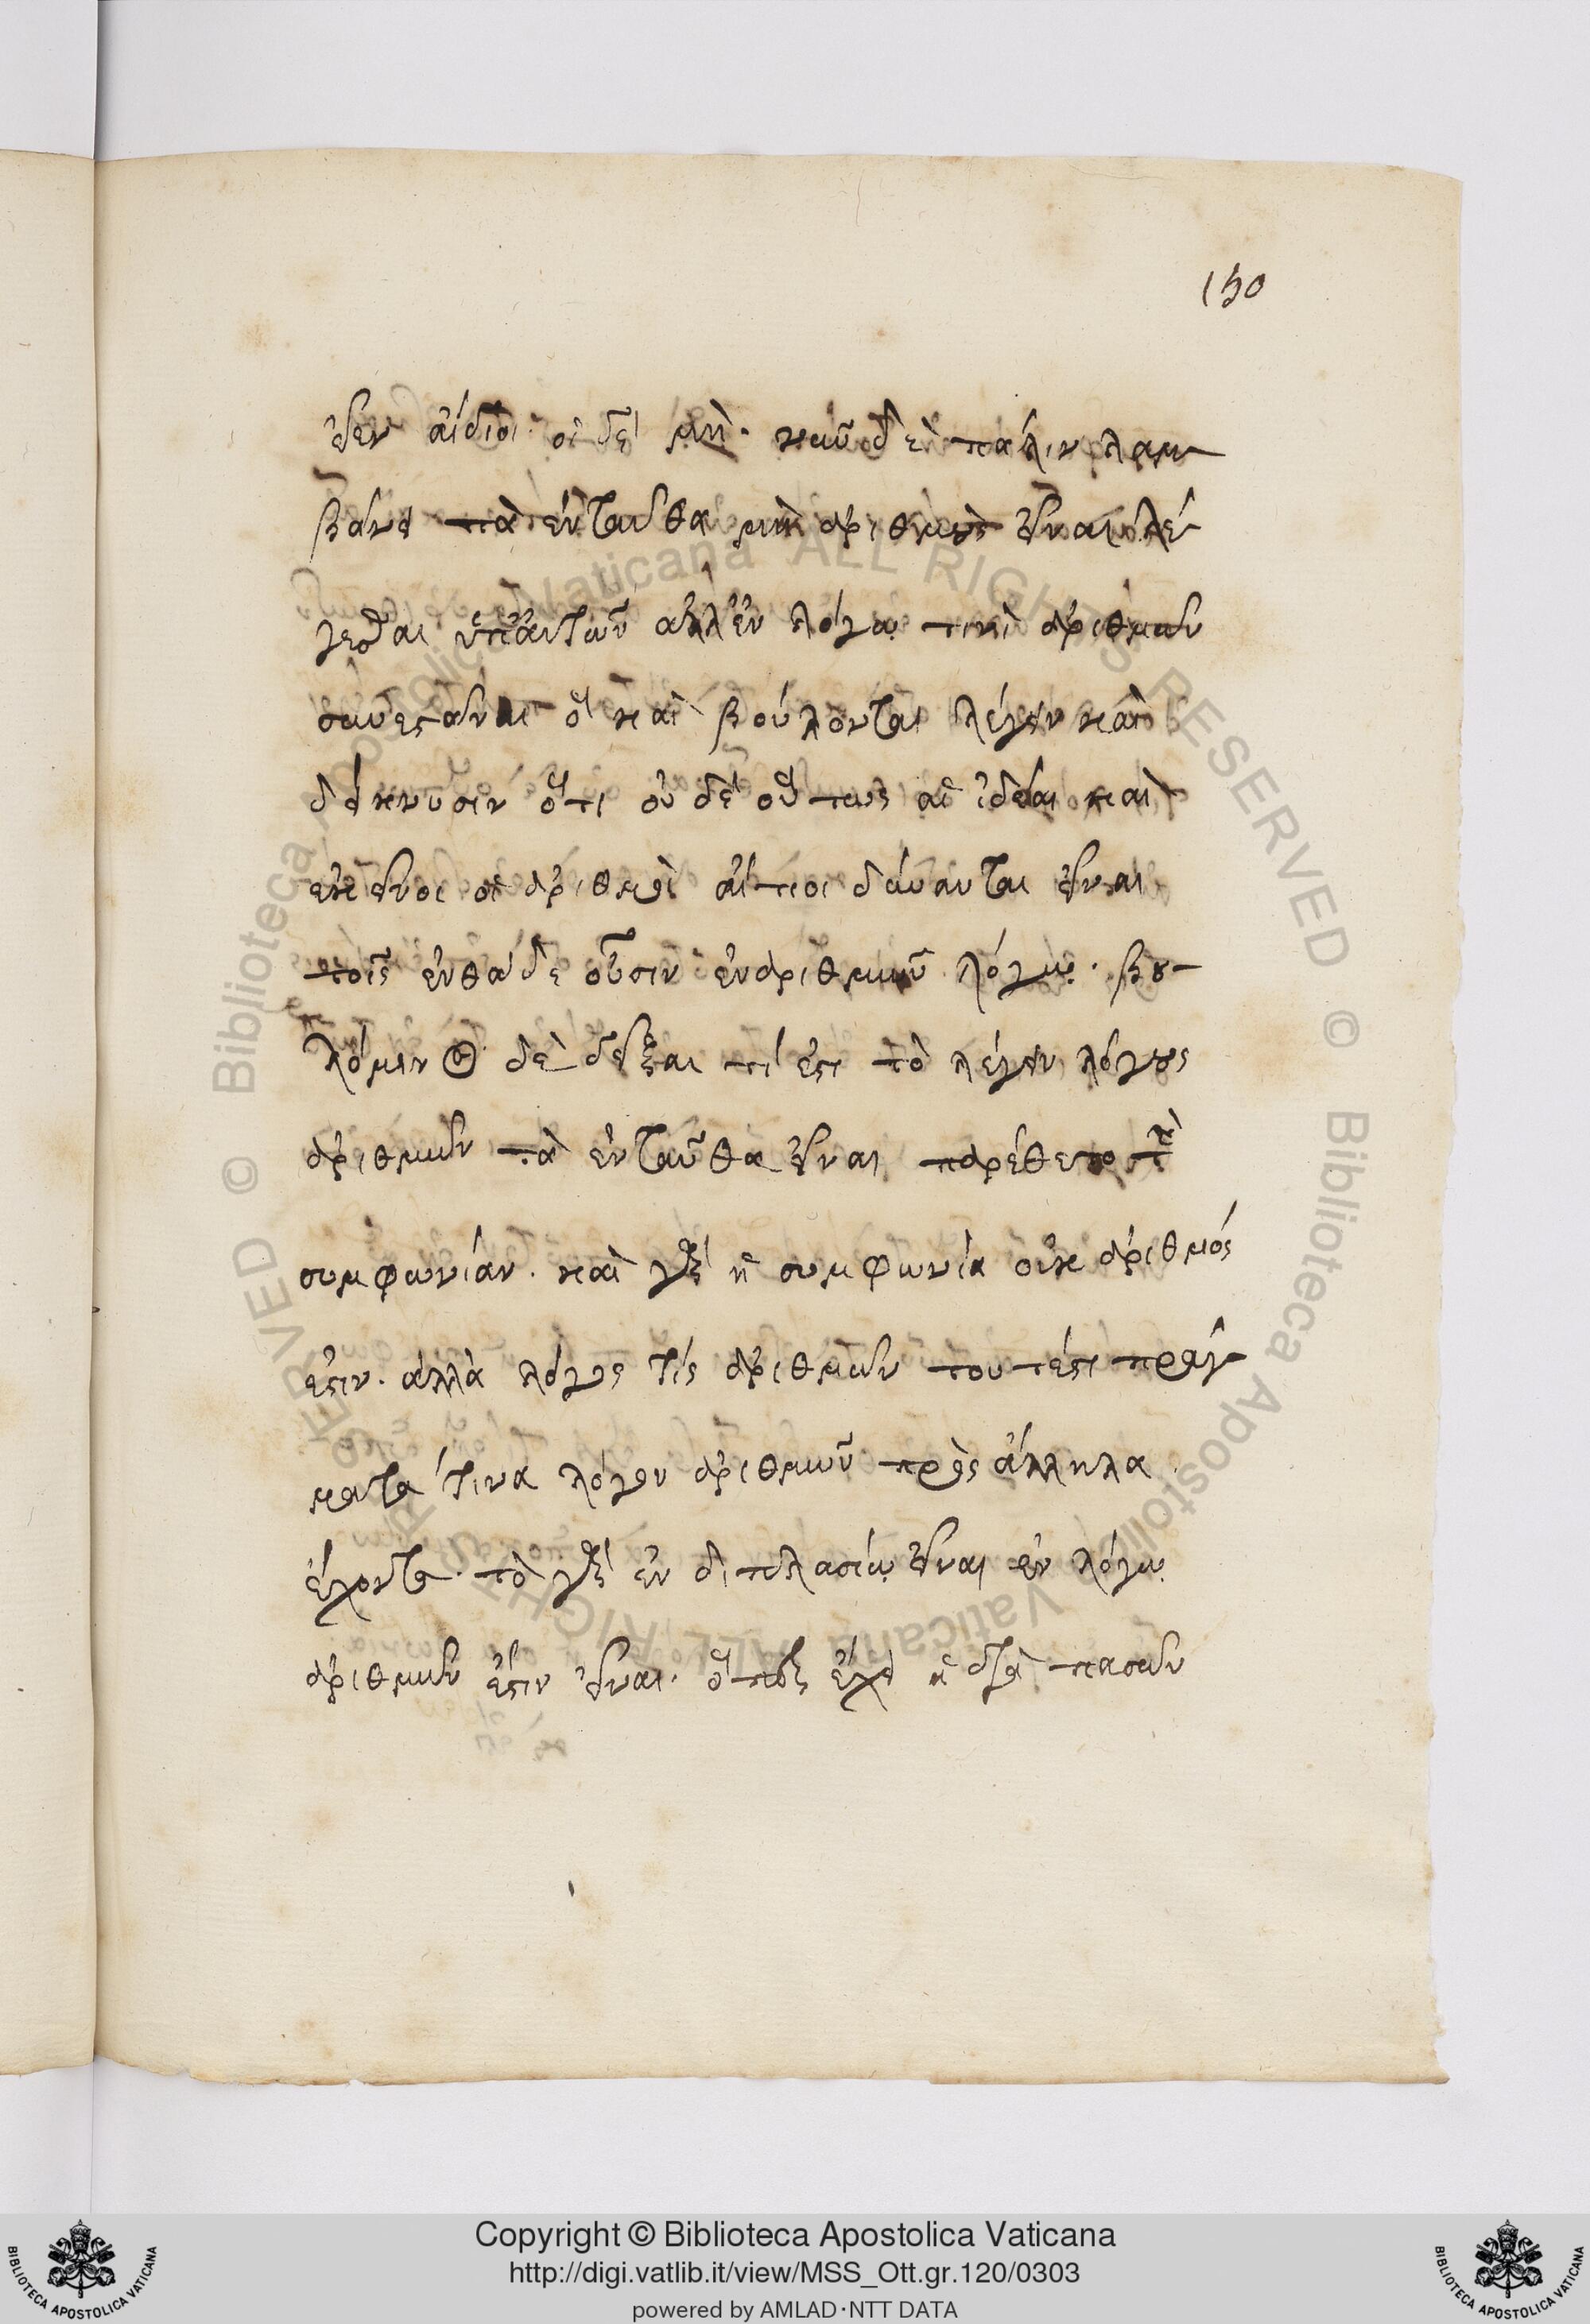 150
εἶεν ἀΐδιοι οἱ δὲ μή. νῦν δὲ πάλιν λαμ
βάνει τὰ ἐνταῦθα μὴ ἀριθμοὺς εἶναι λέ
γεσθαι ὑπ' αὐτῶν ἀλλ' ἐν λόγῳ τινὶ ἀριθμῶν
συνεστάναι ὃ καὶ βούλονται λέγειν καὶ
δείκνυσιν ὅτι οὐδὲ οὕτως αἱ ἰδέαι καὶ
ἐκεῖνοι οἱ ἀριθμοὶ αἴτιοι δύνανται εἶναι
τοῖς ἐνθάδε οὖσιν ἐν ἀριθμῶν λόγῳ. βου
λόμενος δὲ δεῖξαι τί ἐστι τὸ λέγειν λόγους
ἀριθμῶν τὰ ἐνταῦθα εἶναι παρέθετο τὴν
συμφωνίαν. καὶ γὰρ ἡ συμφωνία οὐκ ἀριθμός
ἐστιν. ἀλλὰ λόγος τίς ἀριθμῶν τουτέστι πράγ
ματα τινα λόγον ἀριθμῶν πρὸς ἄλληλα
ἔχοντα. τὸ γὰρ ἐν διπλασίῳ εἶναι ἐν λόγῳ
ἀριθμῶν ἐστιν εἶναι. ὅπερ ἔχει ἡ διὰ πασῶν
Copyright © Biblioteca Apostolica Vaticana
http://digi.vatlib.it/view/MSS_Ott.gr.120/0303
powered by AMLAD·NTT DATA
BIBLIOTECA APOSTOLICA VATICANA
BIBLIOTECA APOSTOLICA VATICANA
© Biblioteca Apostolica Vaticana ALL RIGHTS RESERVED © Biblioteca Apostolica Vaticana ALL RIGHTS RESERVED